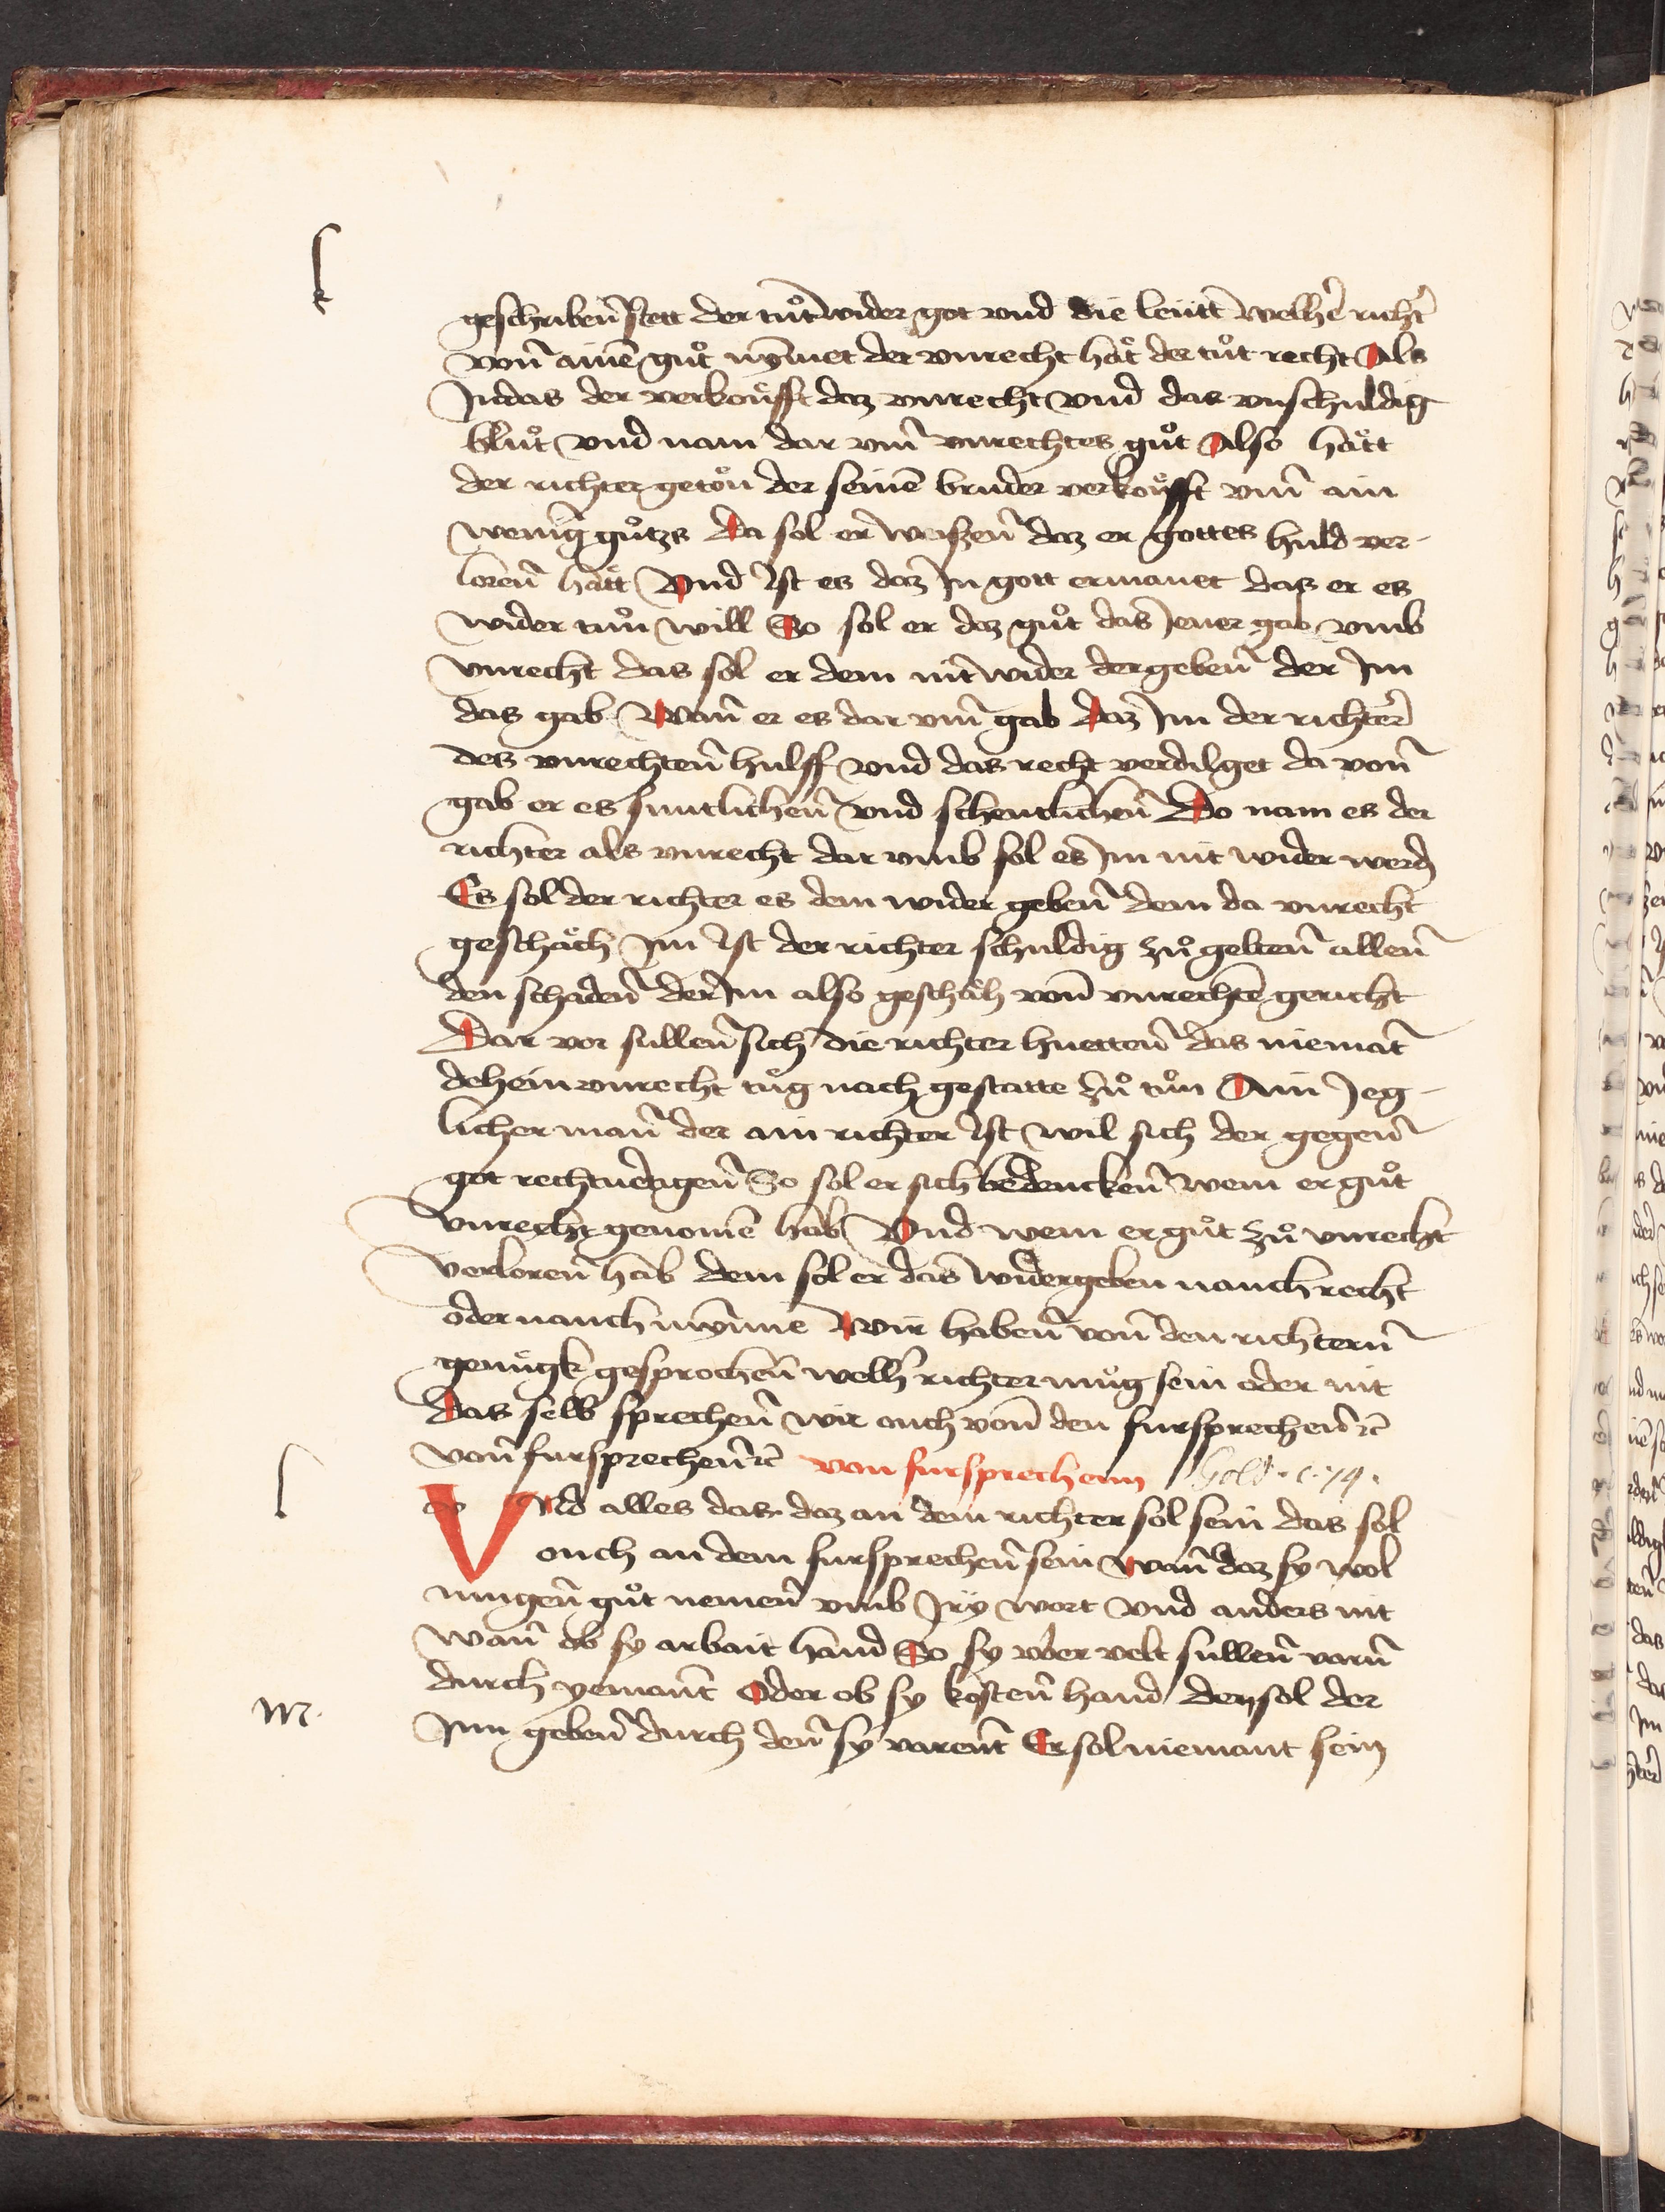 k
geschribeñ stett der tůt wider got vnd die leütt Welhē richt̄
voñ ainē gůt nÿmet der vnrecht hät der tůt recht Als
Judas der verkoufft daz vnrecht vnd das vnschuldig
blůt vnd nam dar vm̄ vnrechtes gůt Also hätt
der richter geton der seinē bruder verkoufft vm̄ ain
wenig gůtzs Da sol er wiszeñ daz er gottes huld ver-
loreñ hätt Vnd ist es daz In gott ermanet das er es
wider tůn will So sol er daz gůt das Jener gab vmb
vnrecht das sol er dem nit wider dergebeñ der Im
das gab Wañ er es dar vm̄ gab Daz Im der richter
des vnrechteñ hulff vnd das recht verdilget da voñ
gab er es suntlicheñ vnd schentlicheñ Do nam es der
richter als vnrecht dar vmb sol es Im nit wider werd
Es sol der richter es dem wider gebeñ dem da vnrecht
geschäch Im ist der richter schuldig zů gelteñ alleñ
den schadeñ der Im also geschäh voñ vnrechtē gericht
Dar vor sulleñ sich die richter huetteñ das niemāt
dehein vnrecht tůg nach gestatte zů tůn Ain Jeg-
licher mañ der ain richter ist wil sich der gegeñ
got rechtuertigeñ So sol er sich bedenckeñ wem er gůt
vnrecht genomē hab Vnd wem er gůt zů vnrecht
verloreñ hab dem sol er das widergeben nauch recht
oder nauch mÿnne Wir habeñ voñ den richterñ
genůgk gesprocheñ welh̄ richter mug sein oder nit
Das selb sprecheñ wir ouch voñ den fursprecheñ ꝛc̄
voñ fursprecheñ ꝛc̄ von fursprechenn Gold. c. 79.
l
Vnd alles das daz an dem richter sol sein das sol
ouch an dem fursprecheñ sein Wañ daz sy wol
mugeñ gůt nemeñ vmb Jry wort vnd anders nit
wañ ob sy arbait hand So sy vber velt sulleñ varñ
durch yemant Oder ob sy kosteñ hand den sol der
m.
Im gebeñ durch deñ sy varent Er sol niemant sein